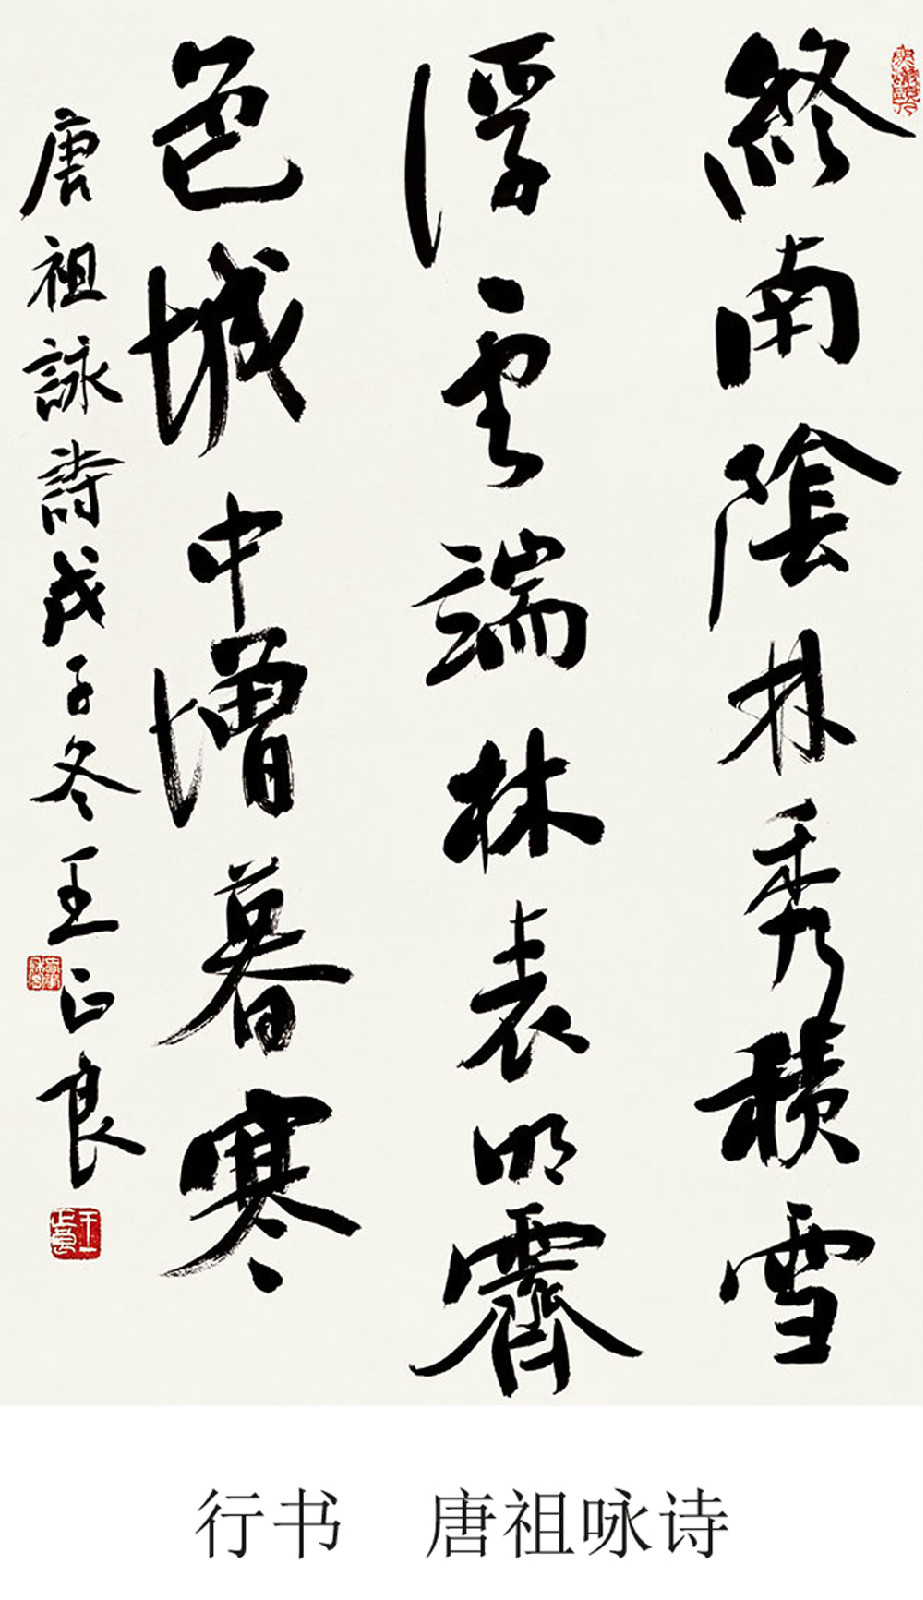 終南陰林秀積雪
浮雲端林表明霽
色城中增暮寒
唐祖詠詩戊子冬王正良
行书　唐祖咏诗